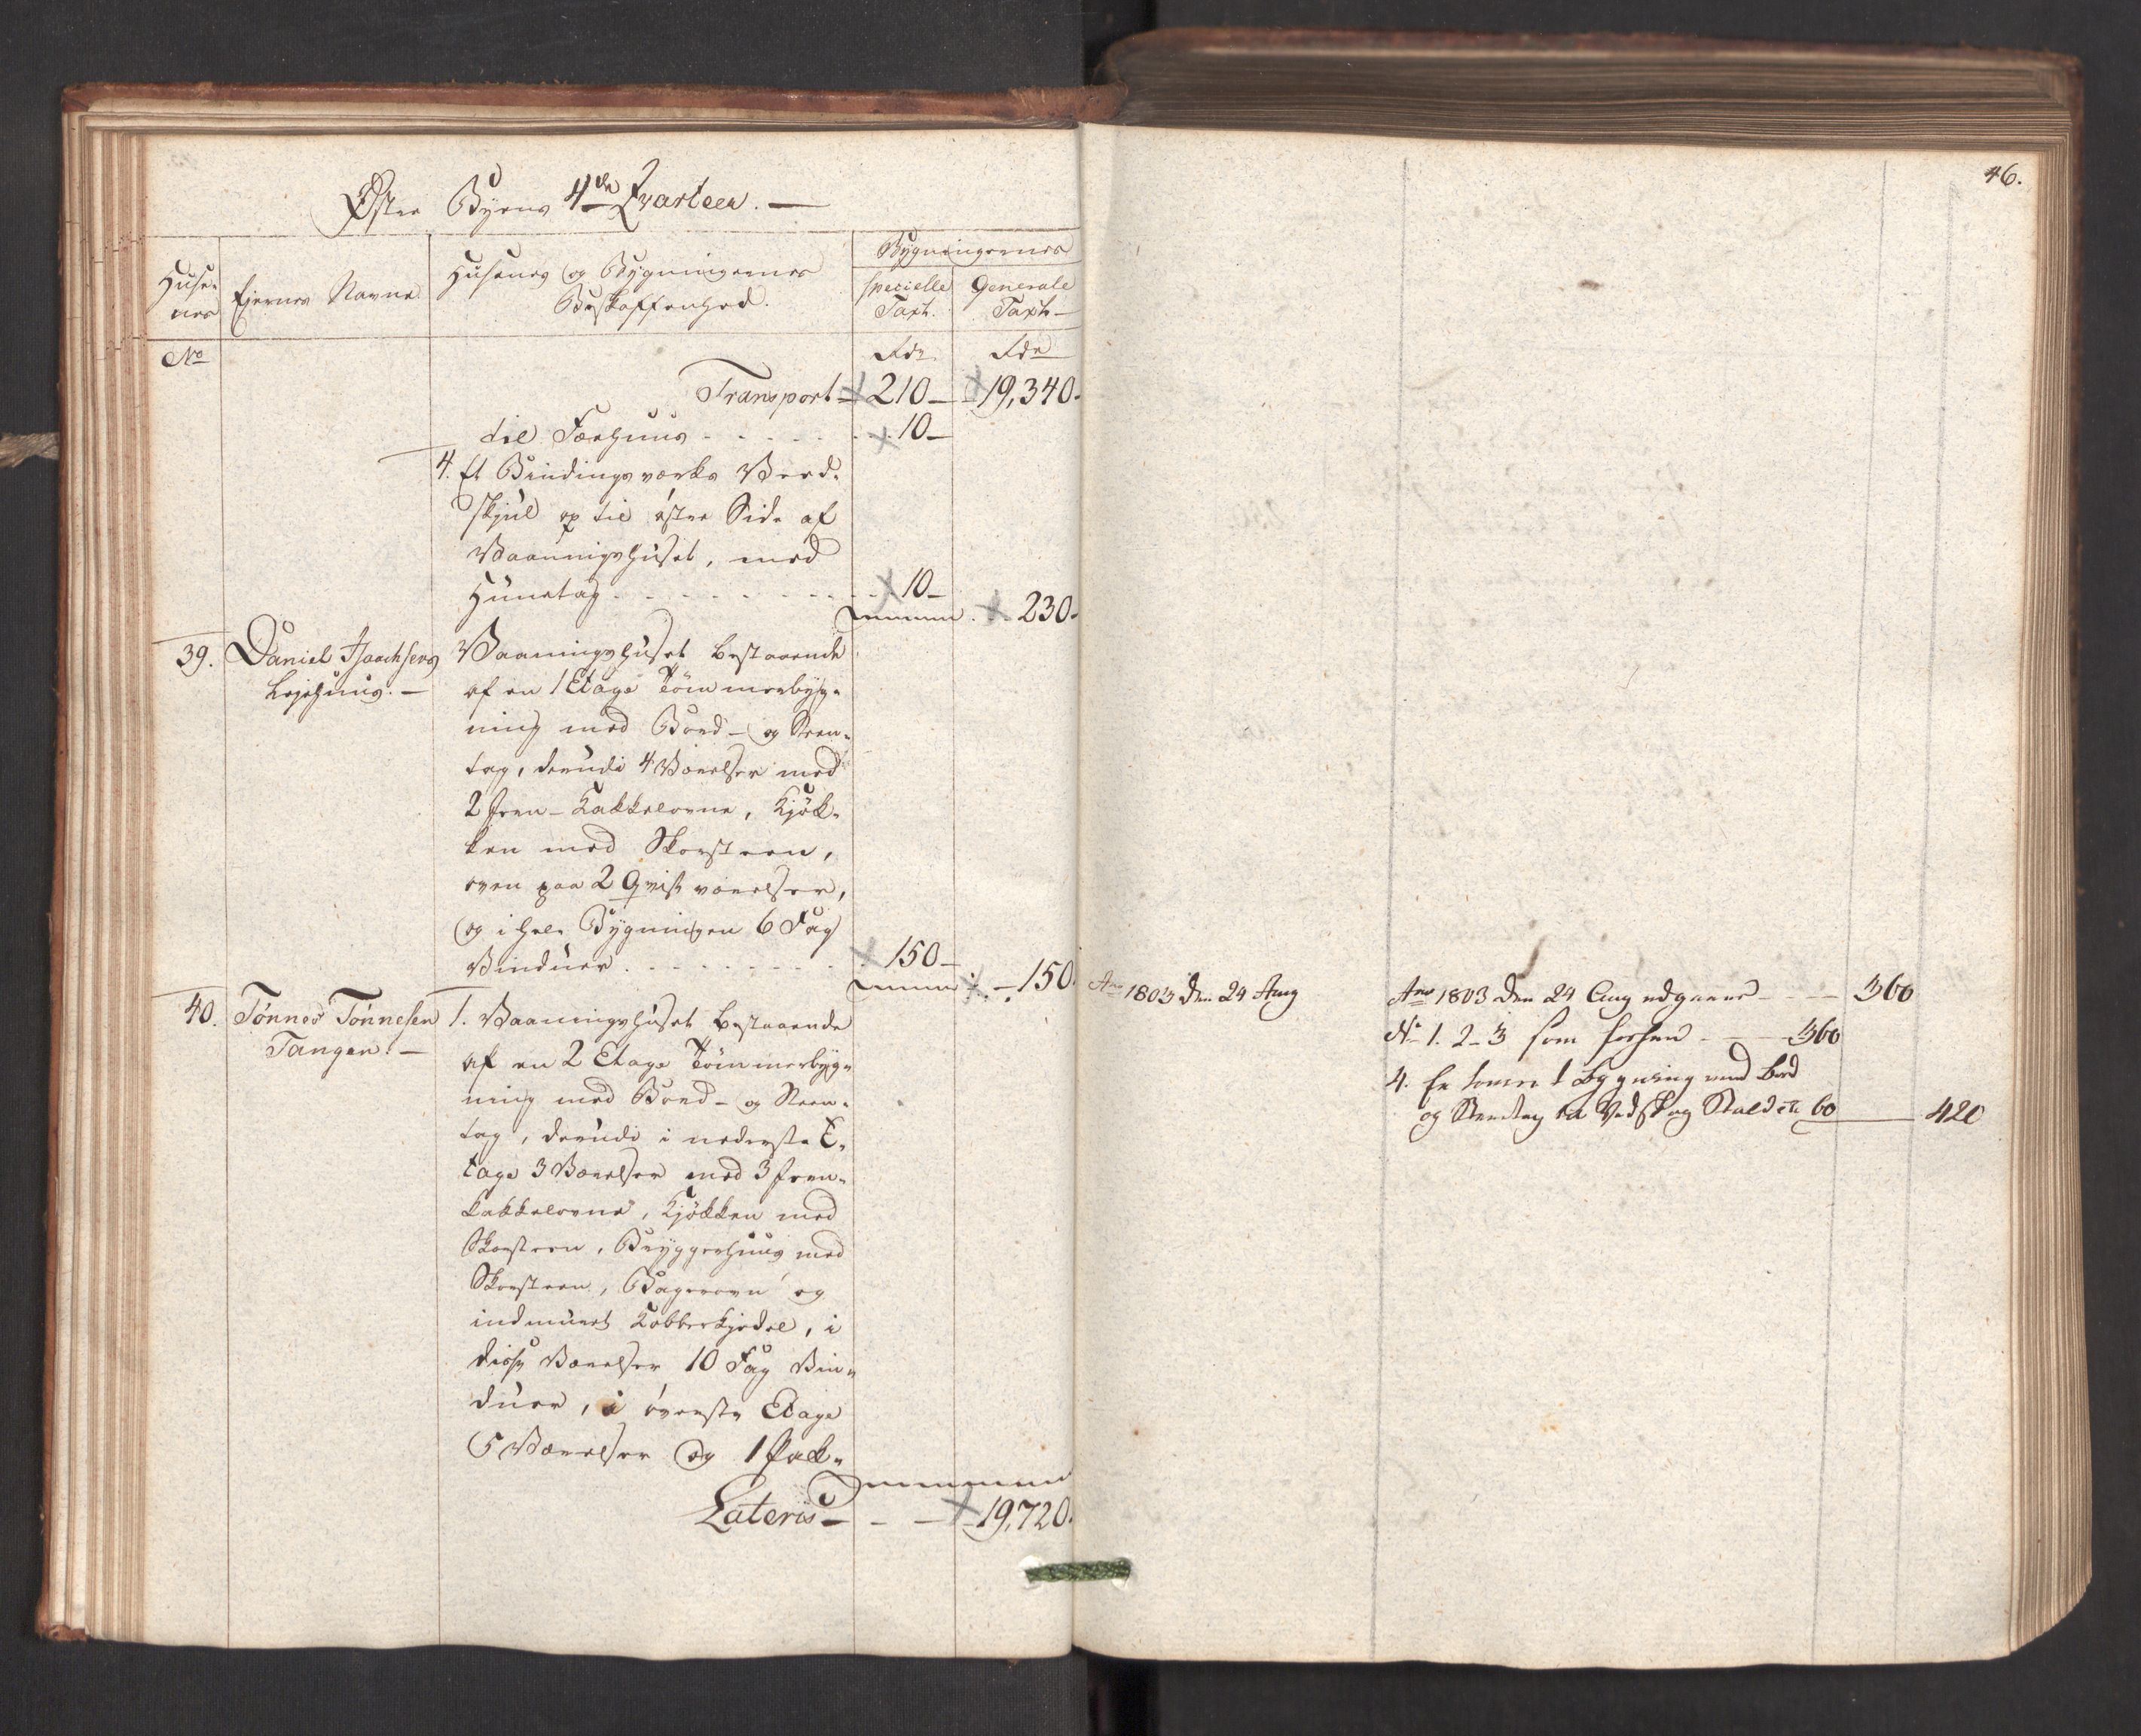 Øster Byens 4de Qvarteer. —
Huse-
nes
No
Ejernes Navne.
Husenes og Bygningernes
Beskaffenhed.
Bygningernes
specielle
Taxt.
Generale
Taxt —
Rdr.
Rdr
Transport — 210 — 19,340.
til Færhuus - - - - - 10 —
4. Et Bindingsværks Ved-
skjul op til østre Side af
Vaaningshuset, med
Hunetag - - - - - - 10 —
230.
39. Daniel Isaachsens
Lejehuus. —
Vaaningshuset bestaaende
af en 1 Etage Tømmerbyg-
ning med Bord- og Steen-
tag, derudi 4 Værelser med
2 Jern-Kakkelovne, Kjøk-
ken med Skorsteen,
oven paa 2 Qvistværelser,
og i hele Bygningen 6 Fag
Vinduer - - - - - - 150 —
150.
40. Tønnes Tønnesen
Tangen. —
1. Vaaningshuset bestaaende
af en 2 Etage Tømmerbyg-
ning med Bord- og Steen-
tag, derudi i nederste E-
tage 3 Værelser med 3 Jern-
kakkelovne, Kjøkken med
Skorsteen, Bryggerhuus med
Skorsteen, Bagerovn og
indmuret Kobberkjedel, i
disse Værelser 10 Fag Vin-
duer, i øverste Etage
5 Værelser og 1 Pak-
Lateris — - — 19,720.
46.
Ano 1803 den 24 Aug
Ano 1803 den 24 Aug udgaaer - - — 360
No 1. 2 - 3 som forhen - — 360
4. En tømre 1 Bygning med Bord
og Steentag til Vedsk og Stald 60 — 420